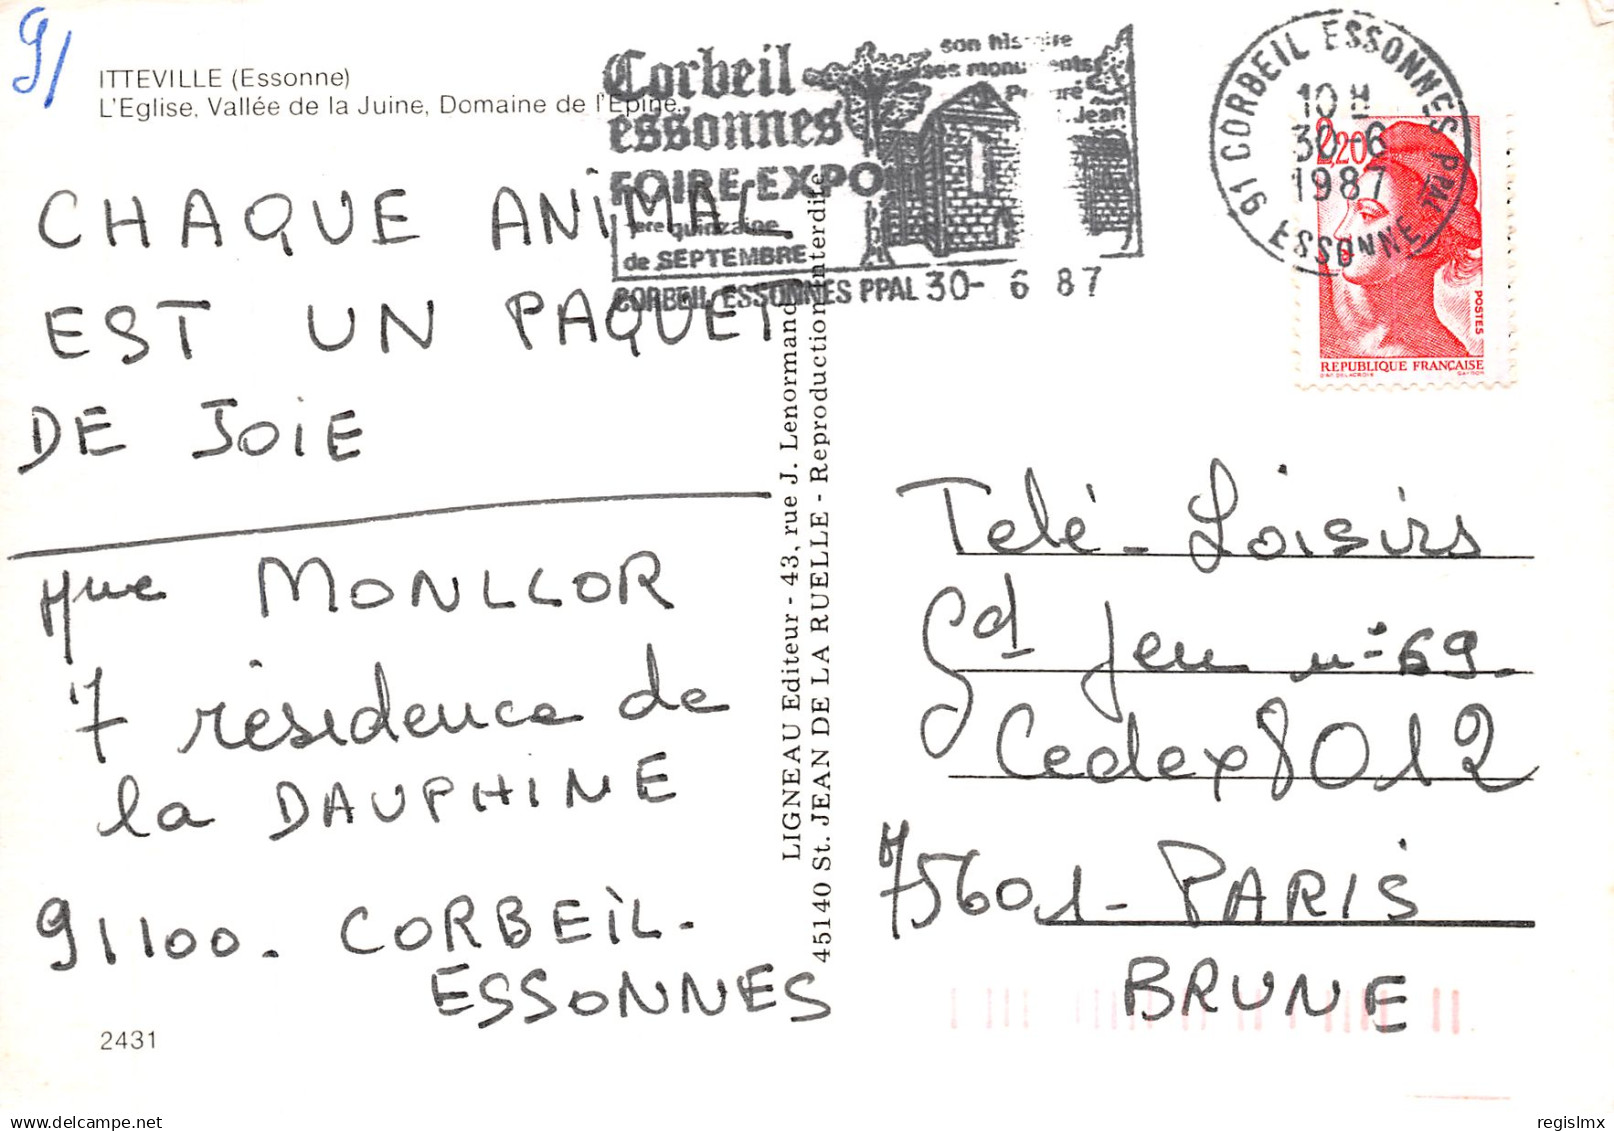 91
ITTEVILLE (Essonne)
L'Eglise, Vallée de la Juine, Domaine de l'Epine.
Corbeil
essonnes
FOIRE-EXPO
1ère quinzaine
de SEPTEMBRE
son histoire
ses monuments
Jean
CORBEIL ESSONNES PPAL 30- 6 87
91 CORBEIL ESSONNES PPAL
10 H
30-6
1987
ESSONNE
2,20
POSTES
REPUBLIQUE FRANÇAISE
D'AP. DELACROIX GANDON
CHAQUE ANIMAL
EST UN PAQUET
DE JOIE
Mme MONLLOR
7 résidence de
la DAUPHINE
91100. CORBEIL-
ESSONNES
2431
LIGNEAU Editeur - 43, rue J. Lenormand
45140 St. JEAN DE LA RUELLE - Reproduction interdite
Télé-Loisirs
Gd Jeu n° 69.
Cedex 8012
75601- PARIS
BRUNE
regislmx